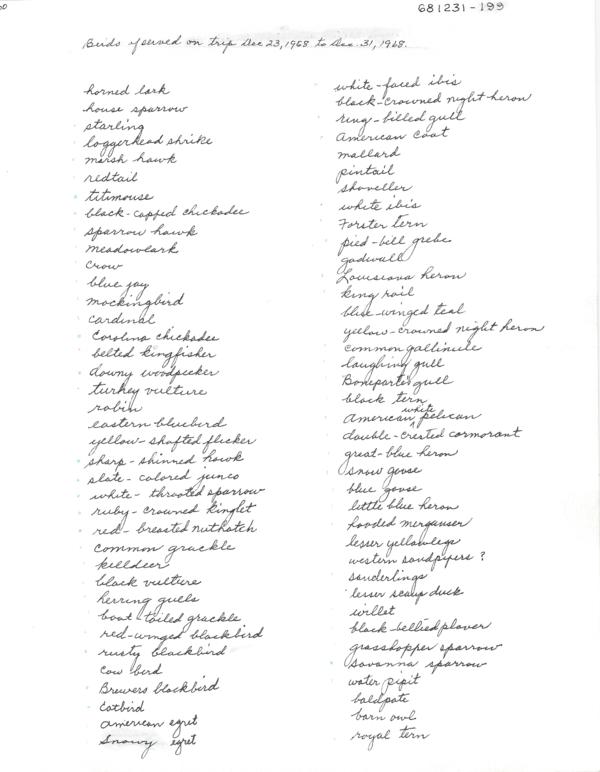 681231-199
Birds observed on trip Dec 23, 1968 to Dec. 31, 1968.
horned lark
house sparrow
starling
loggerhead shrike
marsh hawk
redtail
titimouse
black-capped chickadee
sparrow hawk
meadowlark
crow
blue jay
mockingbird
cardinal
Carolina chickadee
belted kingfisher
downy woodpecker
turkey vulture
robin
eastern bluebird
yellow-shafted flicker
sharp-shinned hawk
slate-colored junco
white-throated sparrow
ruby-crowned kinglet
red-breasted nuthatch
common grackle
killdeer
black vulture
herring gulls
boat-tailed grackle
red-winged blackbird
rusty blackbird
Cow bird
Brewers blackbird
Catbird
American egret
Snowy egret
white-faced ibis
black-crowned night heron
ring-billed gull
American Coot
mallard
pintail
shoveller
white ibis
Forster tern
pied-bill grebe
gadwall
Louisiana heron
king rail
blue-winged teal
yellow-crowned night heron
common gallinule
laughing gull
Bonepartes gull
black tern
American white pelican
double-crested cormorant
great-blue heron
snow goose
blue goose
little blue heron
hooded merganser
lesser yellowlegs
western sandpipers ?
sanderlings
lesser scaup duck
willet
black-bellied plover
grasshopper sparrow
Savanna sparrow
water pipit
baldpate
barn owl
royal tern